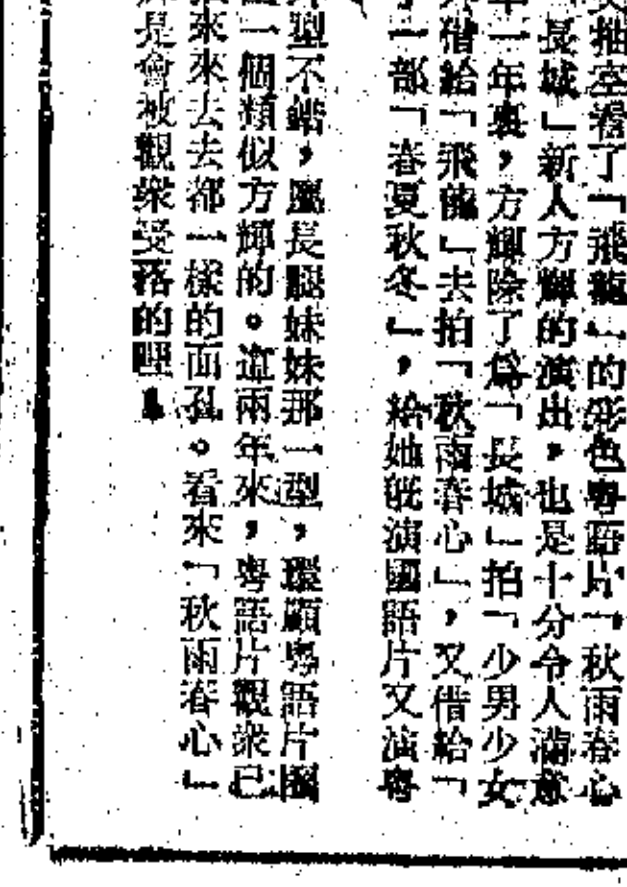 抽空看了「飛龍」的彩色粵語片「秋雨春心
長城」新人方輝的演出，也是十分令人滿意
一年裏，方輝除了爲「長城」拍「少男少女
借給「飛龍」去拍「秋雨春心」，又借給「
一部「春夏秋冬」，給她旣演國語片又演粵
型不錯，屬長腿妹妹那一型，環顧粵語片圈
一個類似方輝的。這兩年來，粵語片觀衆已
來來去去都一樣的面孔。看來「秋雨春心」
是會被觀衆受落的哩！